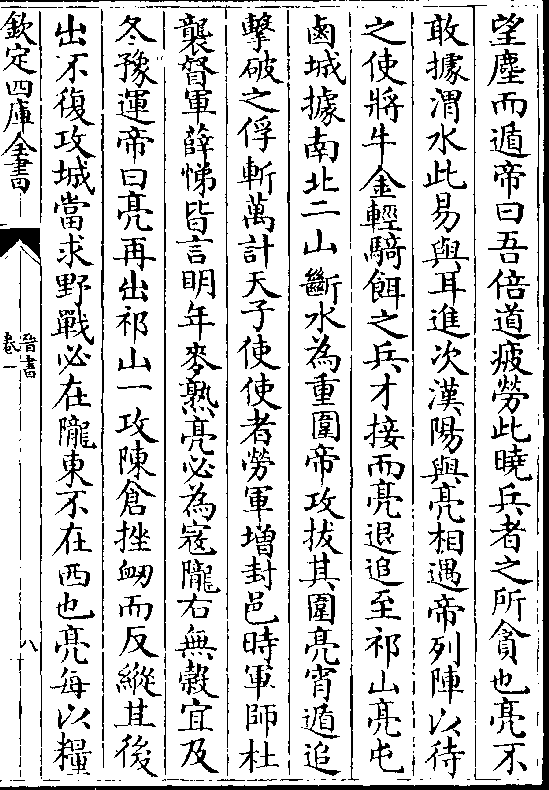 望塵而遁帝曰吾倍道疲勞此曉兵者之所貪也亮不
敢據渭水此易與耳進次漢陽與亮相遇帝列陣以待
之使將牛金輕騎餌之兵才接而亮退追至祁山亮屯
鹵城據南北二山斷水為重圍帝攻拔其圍亮宵遁追
擊破之俘斬萬計天子使使者勞軍增封邑時軍師杜
襲督軍薛悌皆言明年麥熟亮必為寇隴右無穀宜及
冬豫運帝曰亮再出祁山一攻陳倉挫衂而反縱其後
出不復攻城當求野戰必在隴東不在西也亮每以糧
欽定四庫全書
晉書
卷一
八